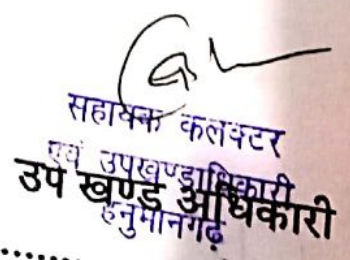 सहायक कलक्टर
एवं उपखण्डाधिकारी
उप खण्ड अधिकारी
हनुमानगढ़